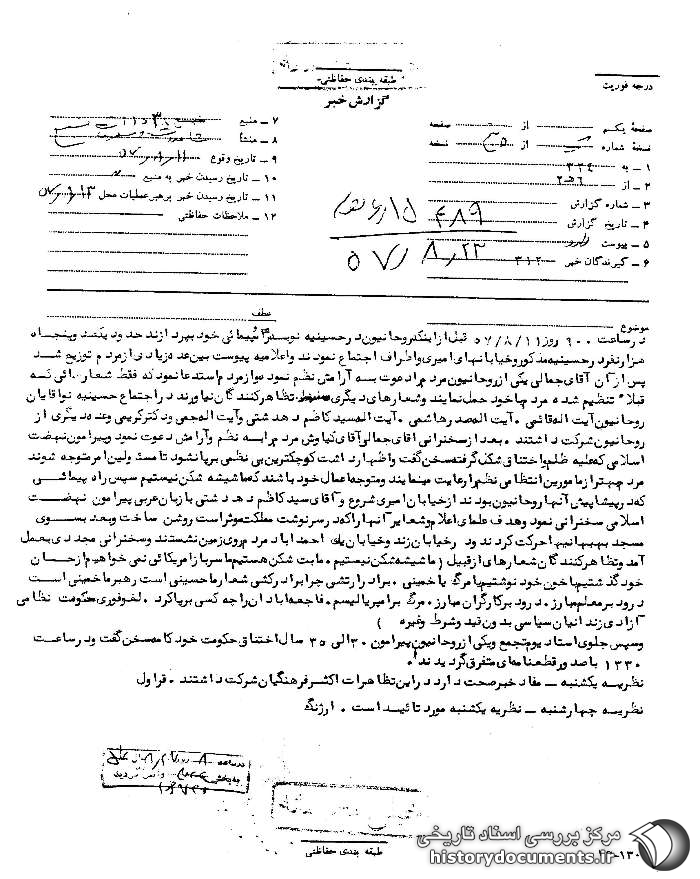 طبقه بندی حفاظتی
درجه فوریت
گزارش خبر
صفحهٔ یکم از صفحه
نسخهٔ شماره از نسخه
۱ ــ به ۳۳۴
۲ ــ از
۳ ــ شماره گزارش
۴ ــ تاریخ گزارش
۵ ــ پیوست
۶ ــ گیرندگان خبر ۳۱۲
۷ ــ منبع
۸ ــ منشأ
۹ ــ تاریخ وقوع
۱۰ ــ تاریخ رسیدن خبر به منبع
۱۱ ــ تاریخ رسیدن خبر برهبر عملیات محل
۱۲ ــ ملاحظات حفاظتی
۵۷/۸/۲۳
موضوع
عطف
درساعت ۹۰۰ روز ۵۷/۸/۱۱ قبل ازاینکه روحانیون در حسینیه بویسراپیمائی خود بپردازند حدود یکصد و پنجاه
هزارنفر در حسینیه مذکور وخیابانهای امیری واطراف اجتماع نمودند واعلامیه پیوست بین عده زیادی ازمردم توزیع شد
پس ازآن آقای جمالی یکی ازروحانیون مردم رادعوت به آرامش ونظم نمود وازمردم استدعا نمود که فقط شعارهائی که
قبلا" تنظیم شده مردم باخود حمل نمایند وشعارهای دیگری تظاهرکنندگان نیاورند در اجتماع حسینیه نوآقایان
روحانیون آیت اله قائمی . آیت اله صدرهاشمی . آیت اله سید کاظم دهدشتی وآیت اله جمی ودکترکریمی وعده دیگری از
روحانیون شرکت داشتند . بعد ازسخنرانی آقای جمالی آقای کیاوش مردم رابه نظم وآرامش دعوت نمود وپیرامون نهضت
اسلامی که علیه ظلم واختناق شکل گرفته سخن گفت واظهارداشت کوچکترین بی نظمی برپانشود تامسئولین امرمتوجه شوند
مردم بهتر ازمامورین انتظامی نظم رارعایت مینمایند ومتوجه اعمال خود باشند که ماشیشه شکن نیستیم سپس راه پیمائی
که درپیشاپیش آنها روحانیون بودند ازخیابان امیری شروع وآقای سید کاظم دهدشتی بازبان عربی پیرامون نهضت
اسلامی سخنرانی نمود وهدف علمای اعلام وشعایر آنهاراکه درسرنوشت مملکت موثراست روشن ساخت وبعد بسوی
مسجد بهبهانیها حرکت کردند ودرخیابان زند وخیابان یک احمدآباد مردم روی زمین نشستند وسخنرانی مجددی بعمل
آمد وتظاهرکنندگان شعارهای ازقبیل ( ماشیشه شکن نیستیم . مابت شکن هستیم ماسرباز آمریکائی نمی خواهیم ازجان
خود گذشتیم باخون خود نوشتیم یامرگ یاخمینی . برادرارتشی چرابرادرکشی شعارماحسینی است رهبرماخمینی است
درود برمعلم مبارز . درود برکارگران مبارز . مرگ برامپریالیسم . فاجعه آبادان راچه کسی برپاکرد . لغو فوری حکومت نظامی
آزادی زندانیان سیاسی بدون قید وشرط وغیره )
وسپس جلوی استادیوم تجمع ویکی ازروحانیون پیرامون ۳۰ الی ۳۵ سال اختناق حکومت خودکامه سخن گفت ودرساعت
۱۳۳۰ باصدورقطعنامه ای متفرق گردیدند .
نظریه یکشنبه ــ مفاد خبرصحت دارد دراین تظاهرات اکثرفرهنگیان شرکت داشتند . قراول
نظریه چهارشنبه ــ نظریه یکشنبه مورد تائید است . ارژنگ
درساعت
طبقه بندی حفاظتی
مرکز بررسی اسناد تاریخی
historydocuments.ir